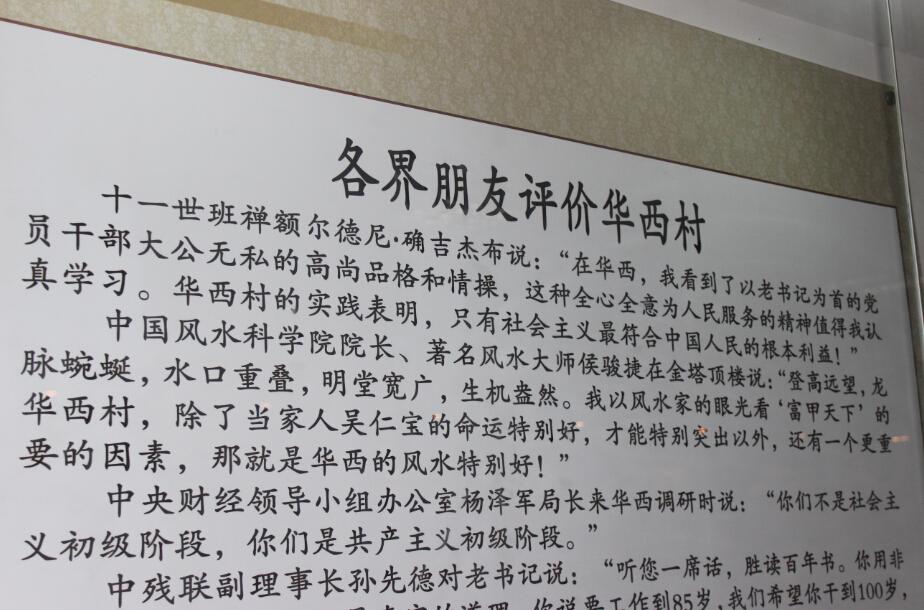 各界朋友评价华西村
十一世班禅额尔德尼·确吉杰布说：“在华西，我看到了以老书记为首的党
员干部大公无私的高尚品格和情操，这种全心全意为人民服务的精神值得我认
真学习。华西村的实践表明，只有社会主义最符合中国人民的根本利益！”
中国风水科学院院长、著名风水大师侯骏捷在金塔顶楼说：“登高远望，龙
脉蜿蜒，水口重叠，明堂宽广，生机盎然。我以风水家的眼光看‘富甲天下’的
华西村，除了当家人吴仁宝的命运特别好，才能特别突出以外，还有一个更重
要的因素，那就是华西的风水特别好！”
中央财经领导小组办公室杨泽军局长来华西调研时说：“你们不是社会主
义初级阶段，你们是共产主义初级阶段。”
中残联副理事长孙先德对老书记说：“听您一席话，胜读百年书。你用非
的道理，你说要工作到85岁，我们希望你干到100岁，